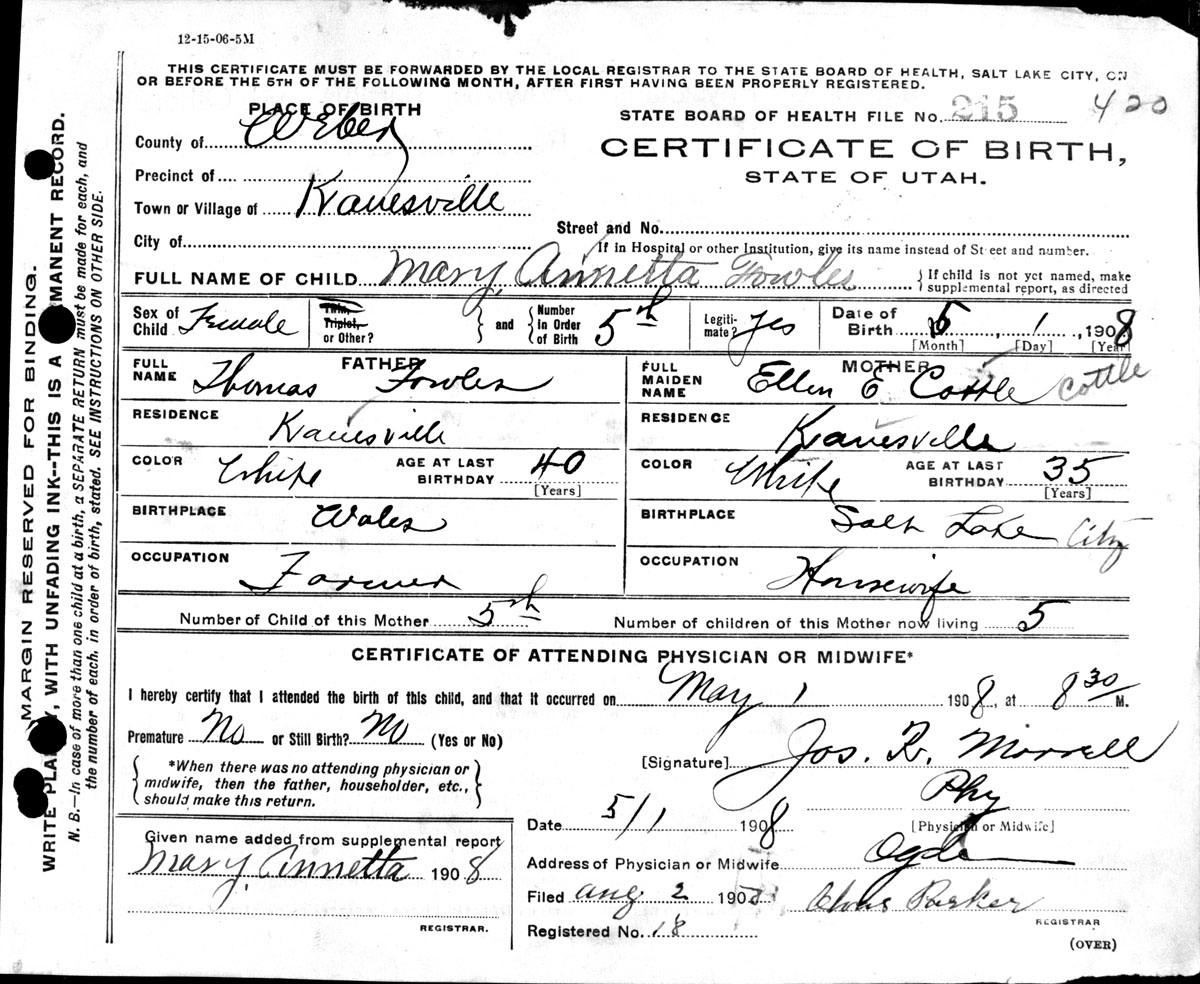 12-15-06-5M
THIS CERTIFICATE MUST BE FORWARDED BY THE LOCAL REGISTRAR TO THE STATE BOARD OF HEALTH, SALT LAKE CITY, ON
OR BEFORE THE 5TH OF THE FOLLOWING MONTH, AFTER FIRST HAVING BEEN PROPERLY REGISTERED.
PLACE OF BIRTH
STATE BOARD OF HEALTH FILE No. 215 420
County of Weber
CERTIFICATE OF BIRTH,
STATE OF UTAH.
Precinct of
Town or Village of Kanesville
Street and No.
City of
If in Hospital or other Institution, give its name instead of Street and number.
FULL NAME OF CHILD Mary Annetta Fowles
If child is not yet named, make
supplemental report, as directed
Sex of Child Female
Twin, Triplet, or Other?
and
Number in Order of Birth 5th
Legitimate? yes
Date of Birth 5, 1, 1908
[Month] [Day] [Year]
FATHER
FULL NAME Thomas Fowles
RESIDENCE Kanesville
COLOR White AGE AT LAST BIRTHDAY 40
[Years]
BIRTHPLACE Wales
OCCUPATION Farmer
MOTHER
FULL MAIDEN NAME Ellen E Cottle Cottle
RESIDENCE Kanesville
COLOR White AGE AT LAST BIRTHDAY 35
[Years]
BIRTHPLACE Salt Lake City
OCCUPATION Housewife
Number of Child of this Mother 5th Number of children of this Mother now living 5
CERTIFICATE OF ATTENDING PHYSICIAN OR MIDWIFE*
I hereby certify that I attended the birth of this child, and that it occurred on May 1 1908, at 8 30 M.
Premature No or Still Birth? No (Yes or No)
[Signature] Jos. R. Morrell
*When there was no attending physician or
midwife, then the father, householder, etc.,
should make this return.
Phy
[Physician or Midwife]
Date 5/1 1908
Given name added from supplemental report
Mary Annetta 1908
REGISTRAR.
Address of Physician or Midwife Ogden
Filed Aug 2 1908 Parker
REGISTRAR
Registered No. 18
(OVER)
MARGIN RESERVED FOR BINDING.
WRITE PLAINLY, WITH UNFADING INK--THIS IS A PERMANENT RECORD.
N. B.—In case of more than one child at a birth, a SEPARATE RETURN must be made for each, and
the number of each, in order of birth, stated. SEE INSTRUCTIONS ON OTHER SIDE.